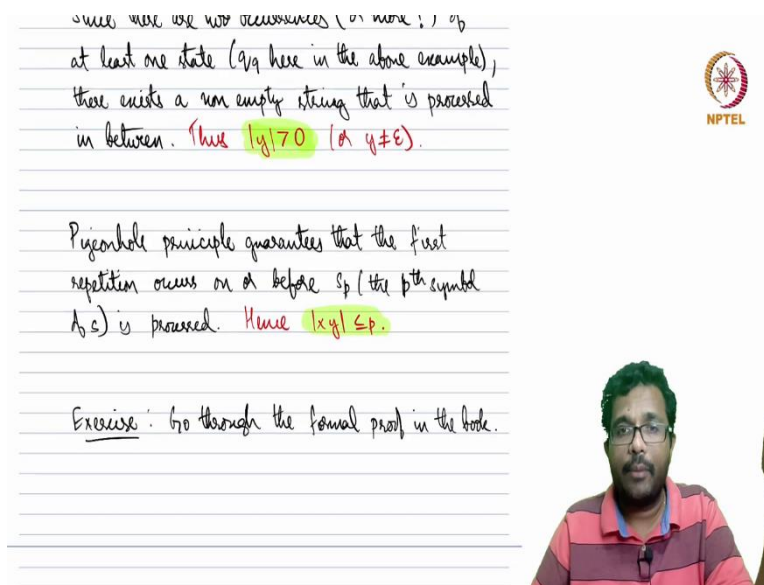 since there are two occurrences (or more!) of
at least one state (q9 here in the above example),
there exists a non empty string that is processed
in between. Thus |y|>0 (or y≠ε).
Pigeonhole principle guarantees that the first
repetition occurs on or before sp (the pth symbol
of s) is processed. Hence |xy| ≤p.
Exercise: Go through the formal proof in the book.
NPTEL